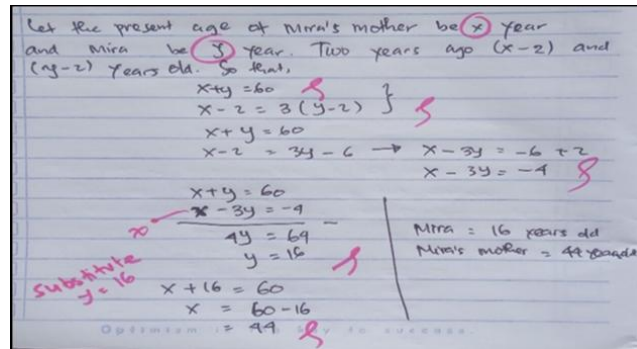 Let the present age of Mira's mother be x year
and Mira be y year. Two years ago (x-2) and
(y-2) years old. So that,
x+y = 60
x - 2 = 3 (y-2) }
x + y = 60
x-2 = 3y - 6 → x - 3y = -6 + 2
x - 3y = -4
x+y = 60
x x - 3y = -4 -
4y = 64
y = 16
substitute
y = 16
x + 16 = 60
x = 60 - 16
= 44
Mira = 16 years old
Mira's mother = 44 years old
Optimism is key to success.